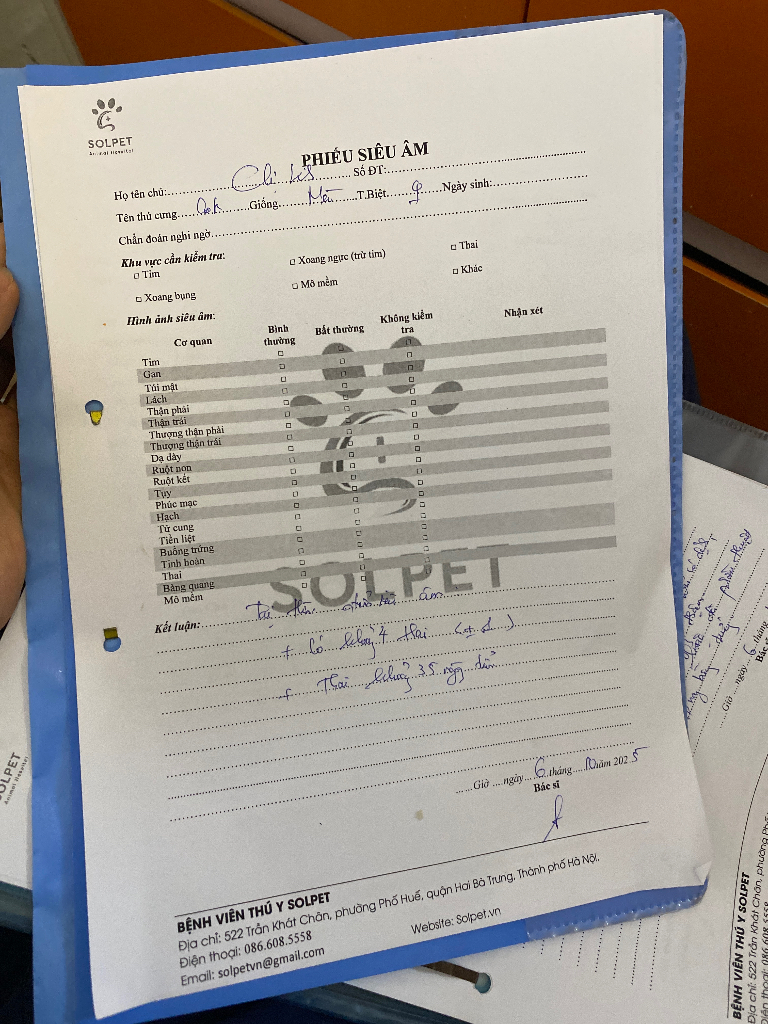 SOLPET
Animal Hospital
PHIẾU SIÊU ÂM
Họ tên chủ: Chị Số ĐT:
Tên thú cưng Giống Mèo T.Biệt ♀ Ngày sinh:
Chẩn đoán nghi ngờ
Khu vực cần kiểm tra:
□ Tim □ Xoang ngực (trừ tim) □ Thai
□ Xoang bụng □ Mô mềm □ Khác
Hình ảnh siêu âm:
Cơ quan Bình thường Bất thường Không kiểm tra Nhận xét
Tim
Gan
Túi mật
Lách
Thận phải
Thận trái
Thượng thận phải
Thượng thận trái
Dạ dày
Ruột non
Ruột kết
Tụy
Phúc mạc
Hạch
Tử cung
Tiền liệt
Buồng trứng
Tinh hoàn
Thai
Bàng quang
Mô mềm
SOLPET
Kết luận: Tại thời điểm siêu âm
+ Có khoảng 4 thai (± 1)
+ Thai khoảng 35 ngày
Giờ ngày 6 tháng 10 năm 2025
Bác sĩ
BỆNH VIỆN THÚ Y SOLPET
Địa chỉ: 522 Trần Khát Chân, phường Phố Huế, quận Hai Bà Trưng, Thành phố Hà Nội.
Điện thoại: 086.608.5558 Website: Solpet.vn
Email: solpetvn@gmail.com
SOLPET
Animal Hospital
Giờ ngày 6 tháng
Bác sĩ
BỆNH VIỆN THÚ Y SOLPET
Địa chỉ: 522 Trần Khát Chân, phường Phố
Điện thoại: 086.608.5558